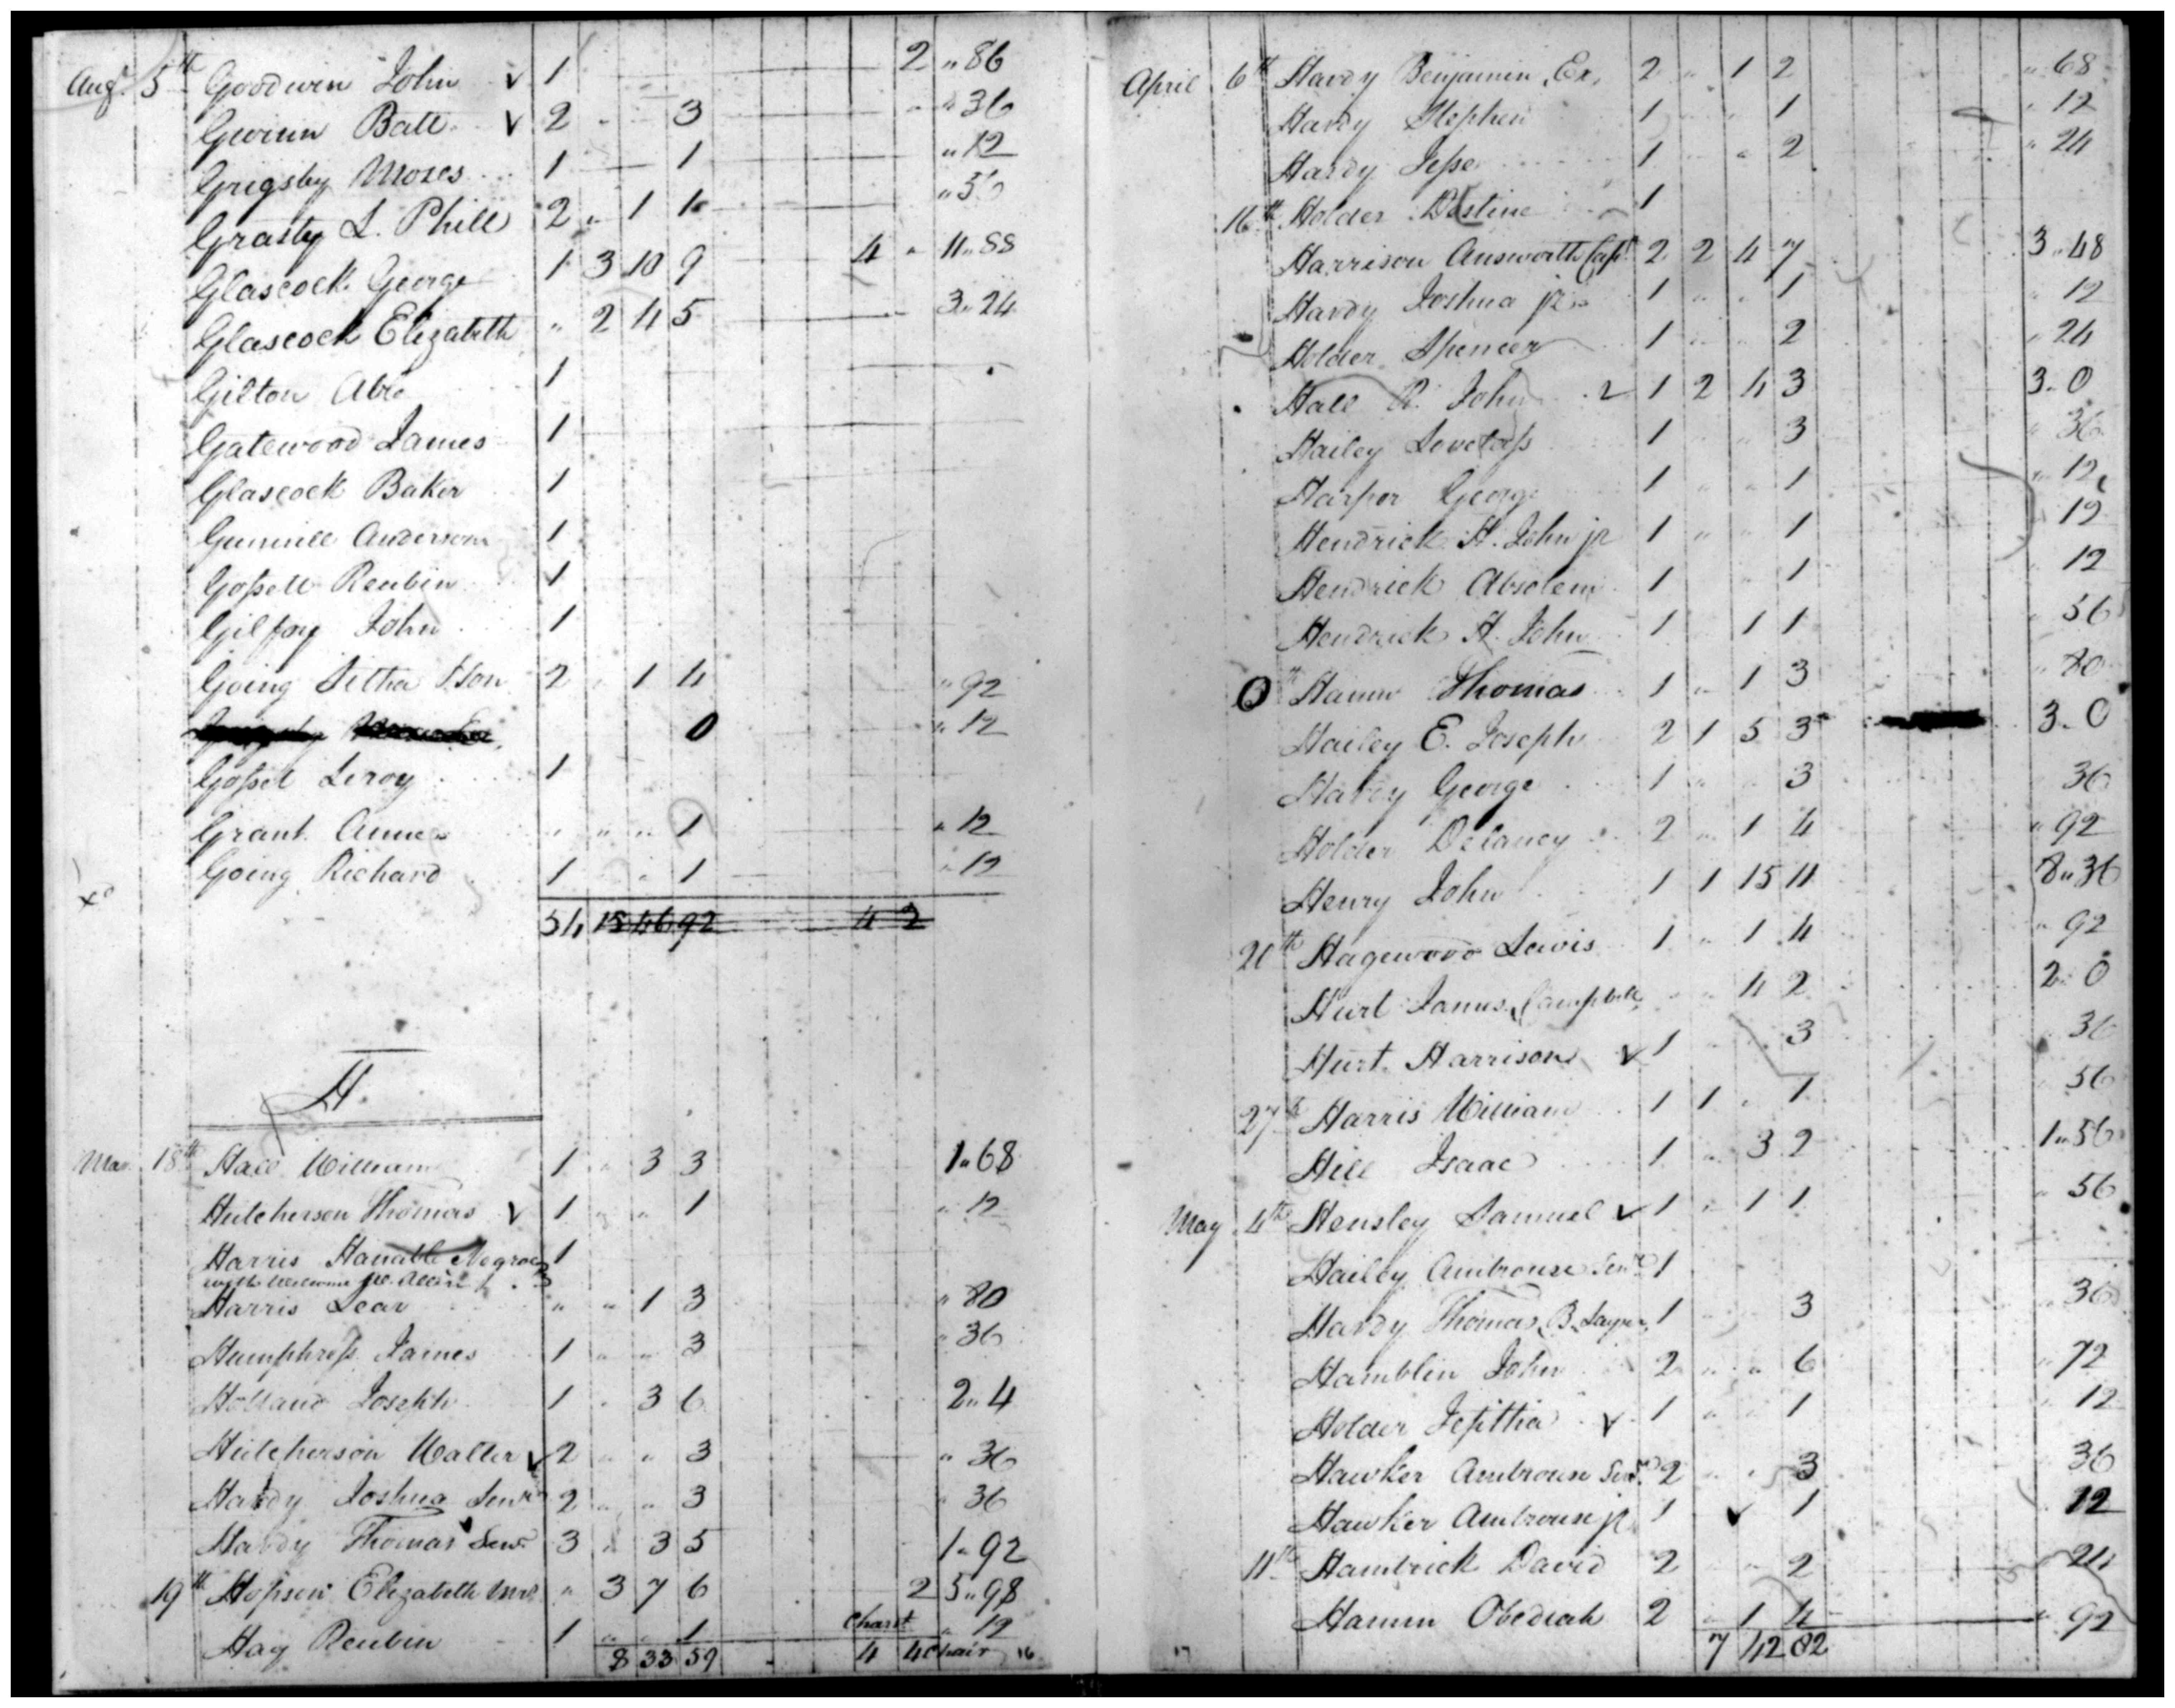 Augt. 5th Goodwin John v 1 2 " 86
Gwinn Batt v 2 " 3 " " 36
Grigsby Moses 1 1 " 12
Grasty L. Phill 2 " 1 1 " 56
Glascock George 1 3 10 9 4 " 11 " 88
Glascock Elizabeth " 2 4 5 3 " 24
Gilton Abr 1
Gatewood James 1
Glascock Baker 1
Gunnell Anderson 1
Gossett Reubin 1
Gilfoy John 1
Going Sitha & Son 2 " 1 4 " 92
0 " 12
Gosset Leroy 1
Grant Anne " " " 1 " 12
Going Richard 1 " 1 " 12
15 46 92 4 2
H
Mar. 18th Hall William 1 " 3 3 1 " 68
Hutcherson Thomas v 1 " " 1 " 12
Harris Hanable Negroes 1
Harris Lear " " 1 3 " 80
Humphress James 1 " " 3 " 36
Holland Joseph 1 " 3 6 2 " 4
Hutcherson Walter v 2 " " 3 " 36
Hardy Joshua Senr 2 " " 3 " 36
Hardy Thomas v Senr 3 " 3 5 1 " 92
19th Hopson Elizabeth Mrs " 3 7 6 2 5 " 98
Hay Reubin 1 " " 1 " 12
8 33 59 4 4 Chair 16
April 6th Hardy Benjamin Ex. 2 " 1 2 " 68
Hardy Stephen 1 " " 1 " 12
Hardy Jesse 1 " " 2 " 24
16th Holder 1
Harrison Answorth Capt 2 2 4 7 3 " 48
Hardy Joshua jr. 1 " " 1 " 12
Holder Spencer 1 " " 2 " 24
Hall R. John 2 1 2 4 3 3 " 0
Hailey Lovelass 1 " " 3 " 36
Harper George 1 " " 1 " 12
Hendrick H. John jr 1 " " 1 12
Hendrick Absolem 1 " 1 12
Hendrick H. John 1 1 1 " 56
0 Hamm Thomas 1 " 1 3 " 80
Hailey E. Joseph 2 1 5 3 3 " 0
Hardy George 1 " " 3 36
Holder Delaney 2 " 1 4 " 92
Henry John 1 1 15 11 8 " 36
20th Hagewood Lewis 1 " 1 4 " 92
Hurt James, Campbell " " 4 2 2 " 0
Hurt Harrison v 1 " " 3 36
27th Harris William 1 1 " 1 56
Hill Isaac 1 " 3 2 1 " 56
May 4th Hensley Samuel v 1 " 1 1 " 56
Hailey Ambrouse Senr 1
Hardy Thomas, B. 1 " 3 36
Hamblin John 2 " " 6 " 72
Holder Jepttha v 1 " " 1 " 12
Hawker Ambrouse Senr. 2 " " 3 36
Hawker Ambrouse jr 1 v 1 12
11th Hambrick David 2 " " 2 24
Hamm Obediah 2 " 1 4 " 92
17 7 42 82